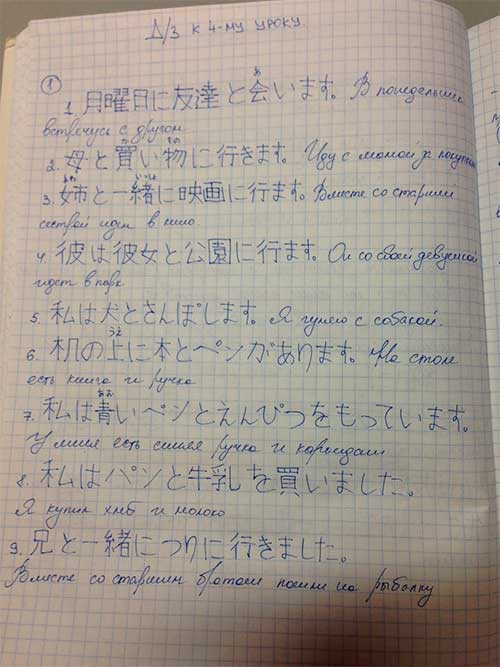 Д/З к 4-му уроку.
①
1. 月曜日に友達と会います。 В понедельник
встречусь с другом
2. 母と買い物に行きます。 Иду с мамой за покупками
3. 姉と一緒に映画に行ます。 Вместе со старшей
сестрой идем в кино.
4. 彼は彼女と公園に行ます。 Он со своей девушкой
идет в парк
5. 私は犬とさんぽします。 Я гуляю с собакой.
6. 机の上に本とペンがあります。 На столе
есть книга и ручка
7. 私は青いペンとえんぴつをもっています。
У меня есть синяя ручка и карандаш
8. 私はパンと牛乳を買いました。
Я купил хлеб и молоко
9. 兄と一緒につりに行きました。
Вместе со старшим братом пошли на рыбалку